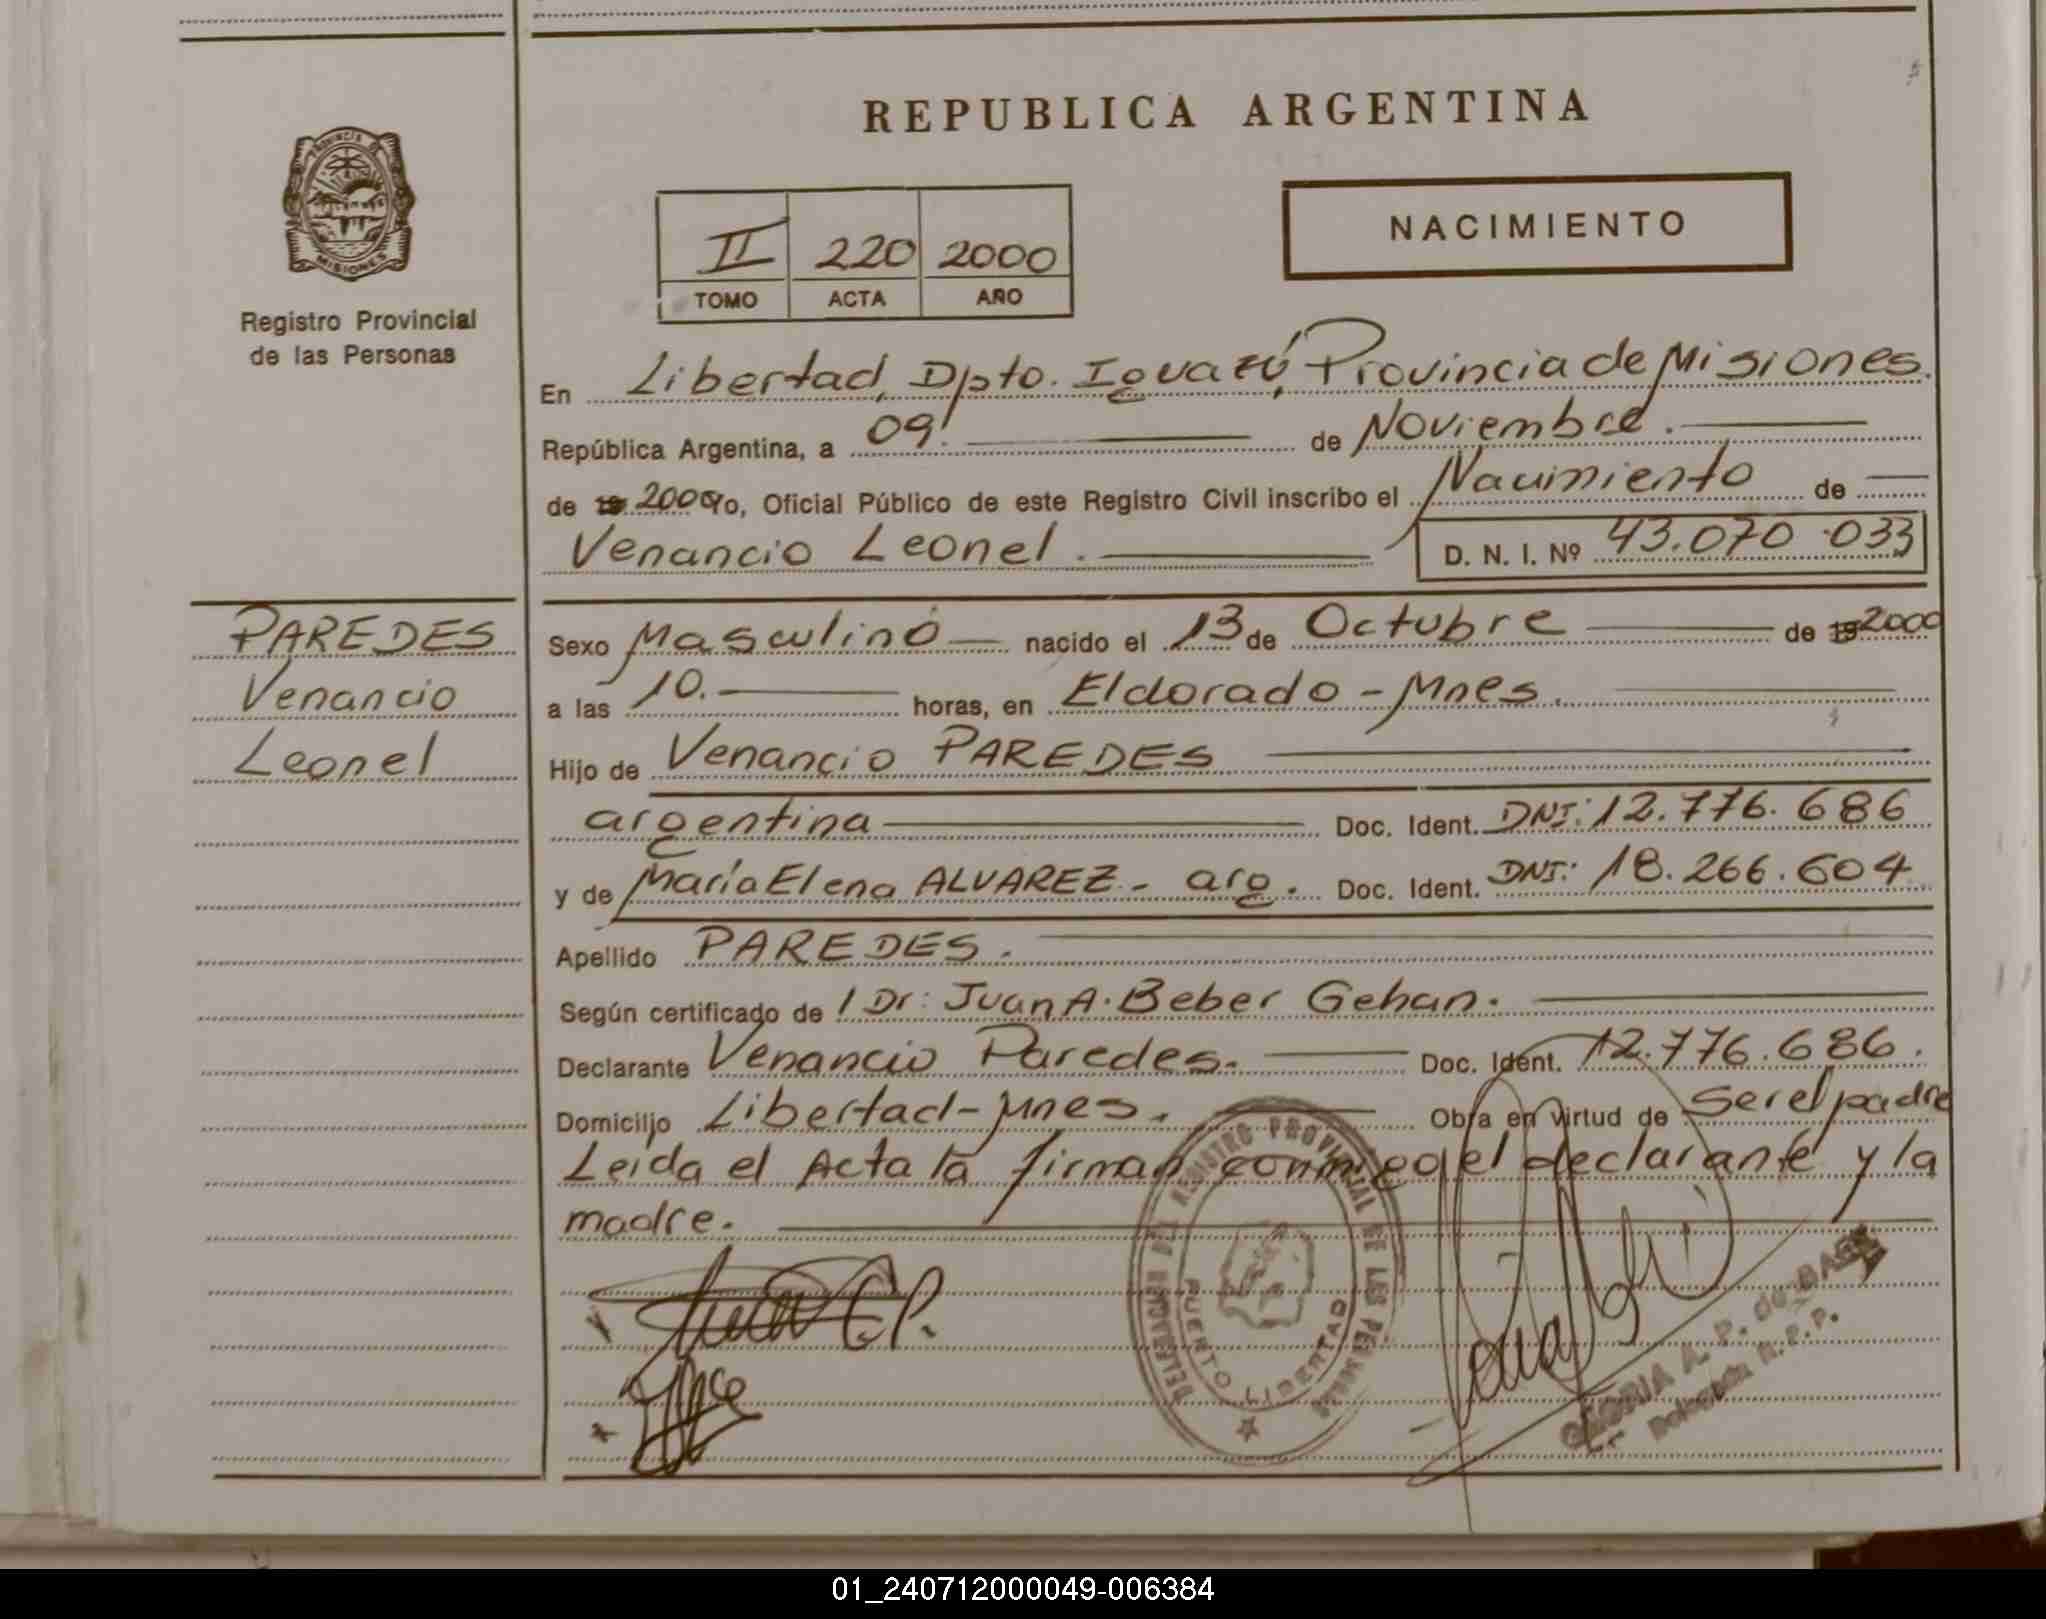 REPUBLICA ARGENTINA
PROVINCIA DE
MISIONES
Registro Provincial
de las Personas
II 220 2000
TOMO ACTA AÑO
NACIMIENTO
En Libertad, Dpto. Iguazú, Provincia de Misiones.
República Argentina, a 09. de Noviembre.
de 19 2000 Yo, Oficial Público de este Registro Civil inscribo el Nacimiento de
Venancio Leonel. D. N. I. Nº 43.070.033
PAREDES
Venancio
Leonel
Sexo Masculino nacido el 13 de Octubre de 19 2000
a las 10. horas, en Eldorado - Mnes.
Hijo de Venancio PAREDES
argentina Doc. Ident. DNI: 12.776.686
y de María Elena ALVAREZ - arg. Doc. Ident. DNI: 18.266.604
Apellido PAREDES.
Según certificado de / Dr: Juan A. Beber Gehan.
Declarante Venancio Paredes. Doc. Ident. 12.776.686.
Domicilio Libertad - Mnes. Obra en virtud de ser el padre
Leida el Acta la firman conmigo el declarante y la
madre.
DELEGACION DEL REGISTRO PROVINCIAL DE LAS PERSONAS
PUERTO LIBERTAD
GLORIA A. P. de
Delegada R. P. P.
01_240712000049-006384